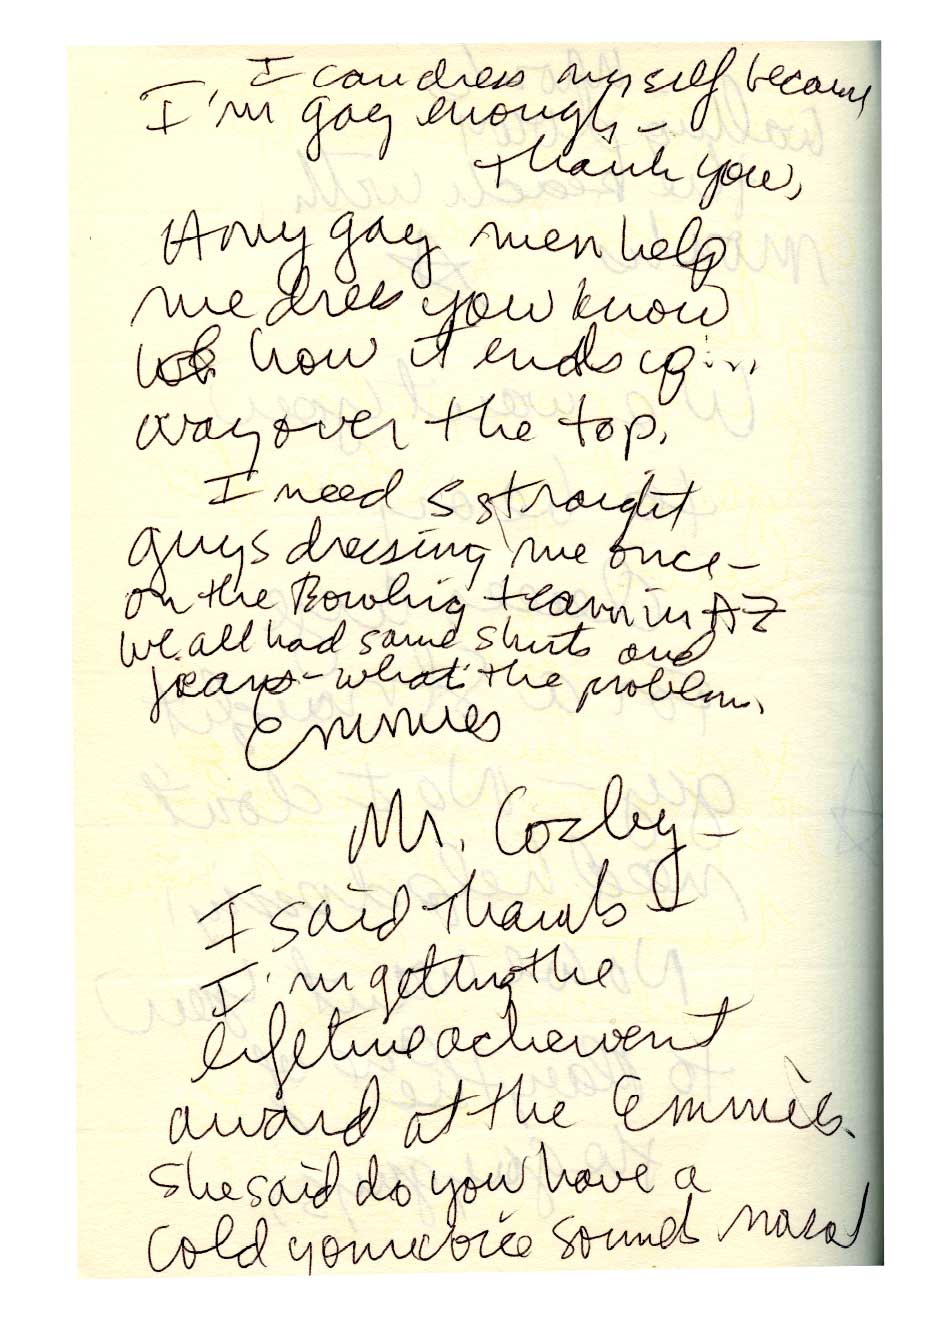 I can dress myself because
I'm gay enough –
thank you,
Any gay men help
me dress you know
how it ends up...
way over the top.
I need 5 straight
guys dressing me once –
on the Bowling team in AZ
we all had same shirts and
jeans – what's the problem.
Emmies
Mr. Cosby –
I said thanks –
I'm getting the
lifetime achievement
award at the Emmies.
She said do you have a
cold your voice sounds nasal